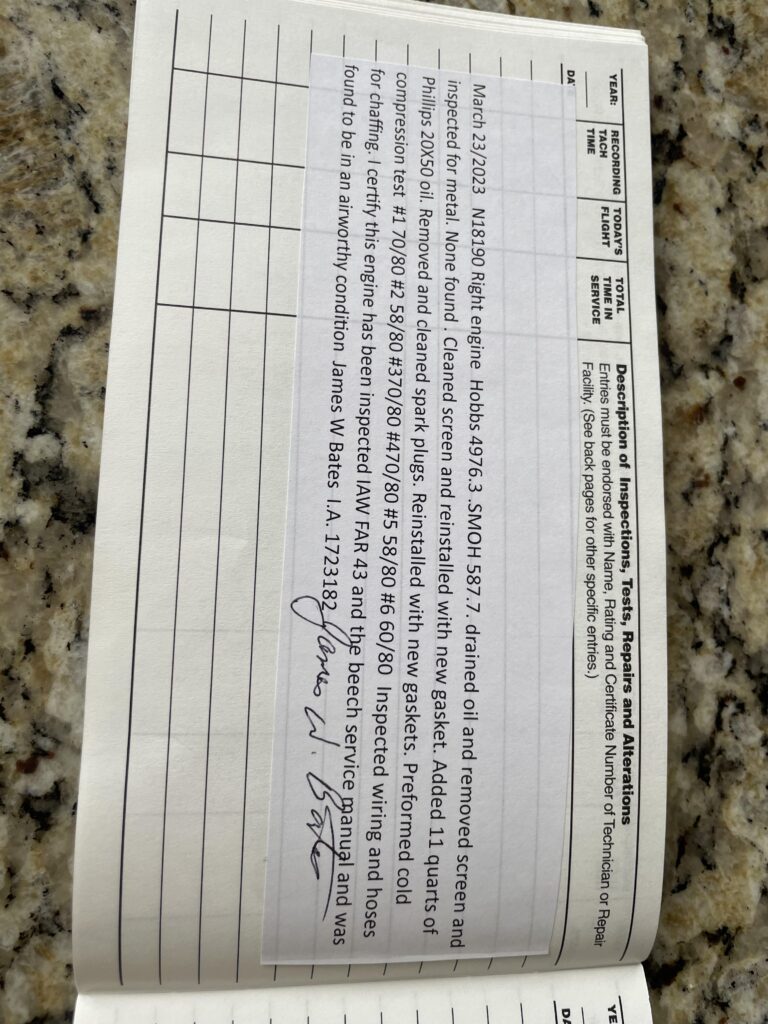 YEAR:
RECORDING TACH TIME
TODAY'S FLIGHT
TOTAL TIME IN SERVICE
Description of Inspections, Tests, Repairs and Alterations
Entries must be endorsed with Name, Rating and Certificate Number of Technician or Repair
Facility. (See back pages for other specific entries.)
DA
March 23/2023 N18190 Right engine Hobbs 4976.3 .SMOH 587.7. drained oil and removed screen and
inspected for metal. None found . Cleaned screen and reinstalled with new gasket. Added 11 quarts of
Phillips 20X50 oil. Removed and cleaned spark plugs. Reinstalled with new gaskets. Preformed cold
compression test #1 70/80 #2 58/80 #370/80 #470/80 #5 58/80 #6 60/80 Inspected wiring and hoses
for chaffing. I certify this engine has been inspected IAW FAR 43 and the beech service manual and was
found to be in an airworthy condition James W Bates I.A. 1723182 James W. Bates
YE
DA